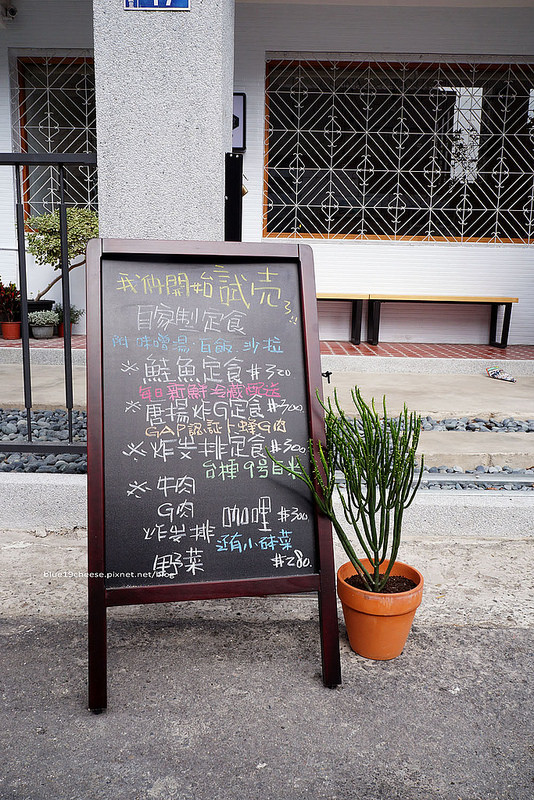 17
我们開始試売3!!
自家製定食
附 味噌湯 白飯 沙拉
※ 鮭魚定食 #320
每日新鮮冷藏配送
※ 唐揚炸G定食 #300
GAP認証 G肉
※ 炸岩排定食 #300
台梗9号白米
※ 牛肉
G肉
咖哩 #300
炸岩排
还有小缽菜
野菜 #280.
blue19cheese.pixnet.net/blog